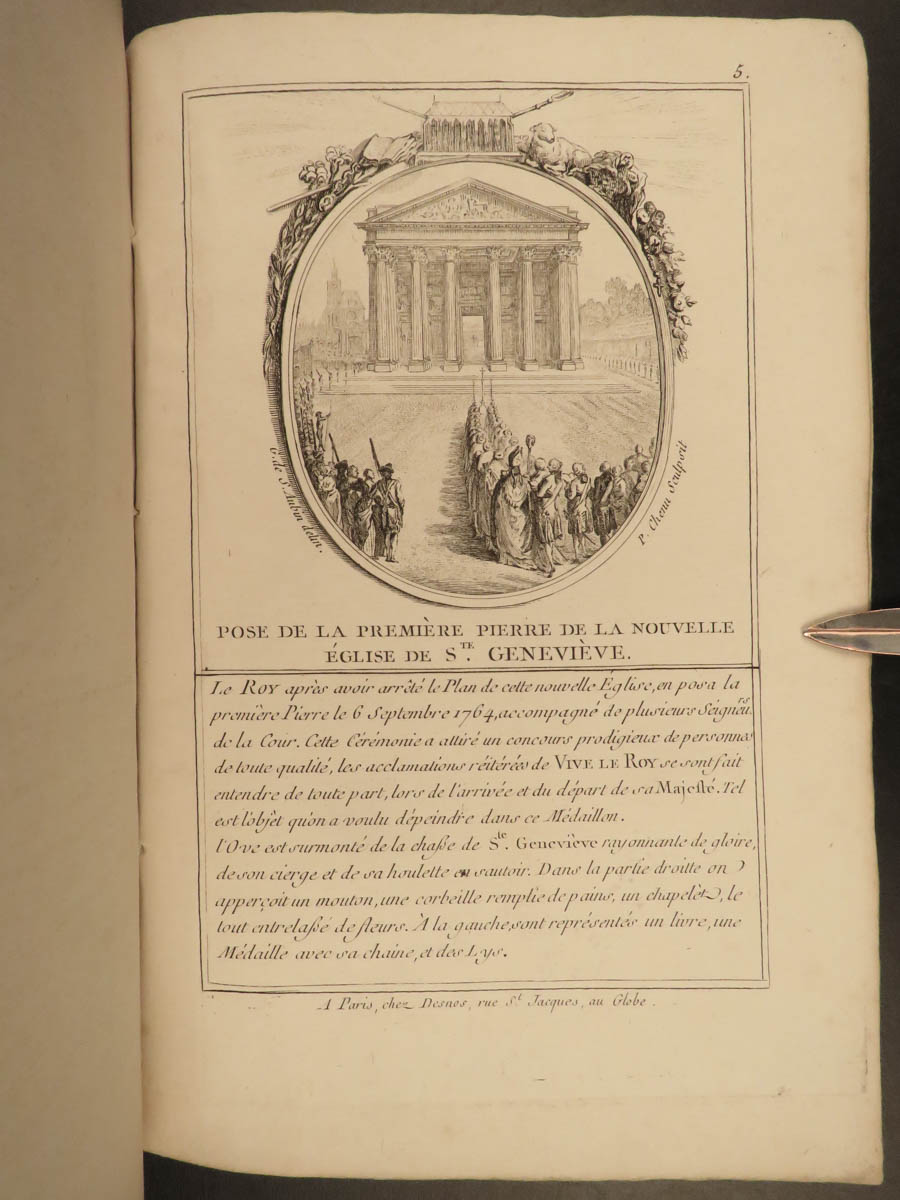 5.
G. de St. Aubin delin.
P. Chenu Sculpsit
POSE DE LA PREMIÈRE PIERRE DE LA NOUVELLE
ÉGLISE DE STE. GENEVIÈVE.
LE ROY après avoir arrêté le Plan de cette nouvelle Eglise, en posa la
première Pierre le 6 Septembre 1764, accompagné de plusieurs Seigneurs.
de la Cour. Cette Cérémonie a attiré un concours prodigieux de personnes
de toute qualité, les acclamations réitérées de VIVE LE ROY se sont fait
entendre de toute part, lors de l'arrivée et du départ de sa Majesté. Tel
est l'objet qu'on a voulu dépeindre dans ce Médaillon.
l'Ove est surmonté de la chaſse de Ste. Geneviève rayonnante de gloire,
de son cierge et de sa houlette en sautoir. Dans la partie droitte on
apperçoit un mouton, une corbeille remplie de pains, un chapelet, le
tout entrelaſsé de fleurs. À la gauche, sont représentés un livre, une
Médaille avec sa chaine, et des Lys.
A Paris, chez Desnos, rue St. Jacques, au Globe.